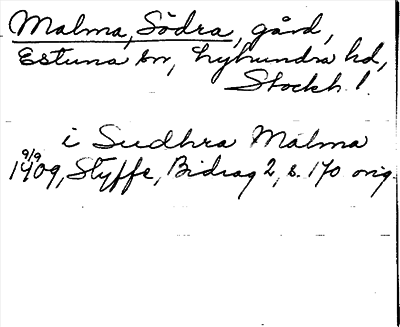 Malma, Södra, gård,
Estuna sn, Lyhundra hd,
Stockh. l.
i Sudhra Malma
9/9
1409, Styffe, Bidrag 2, s. 170 orig.